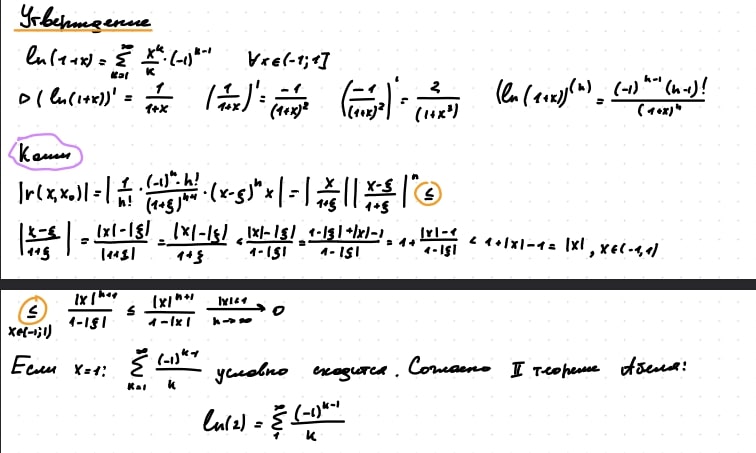 Утверждение
ln(1+x) = ∑_{k=1}^{∞} x^k/k · (-1)^{k-1} ∀x∈(-1;1]
▷ (ln(1+x))' = 1/(1+x) (1/(1+x))' = -1/(1+x)² (-1/(1+x)²)' = 2/(1+x³) (ln(1+x))^{(n)} = (-1)^{n-1}(n-1)!/(1+x)^n
Коши
|r(x,x₀)| = |1/n! · (-1)^n · n!/(1+ξ)^{n+1} · (x-ξ)^n x| = |x/(1+ξ)| |(x-ξ)/(1+ξ)|^n ≤
|(x-ξ)/(1+ξ)| = (|x|-|ξ|)/|1+ξ| = (|x|-|ξ|)/(1+ξ) ≤ (|x|-|ξ|)/(1-|ξ|) = (1-|ξ|+|x|-1)/(1-|ξ|) = 1 + (|x|-1)/(1-|ξ|) < 1+|x|-1 = |x|, x∈(-1,1)
≤_{x∈(-1;1)} |x|^{n+1}/(1-|ξ|) ≤ |x|^{n+1}/(1-|x|) →^{|x|<1}_{n→∞} 0
Если x=1: ∑_{k=1}^{∞} (-1)^{k-1}/k условно сходится. Согласно II теореме Абеля:
ln(2) = ∑_{1}^{∞} (-1)^{k-1}/k